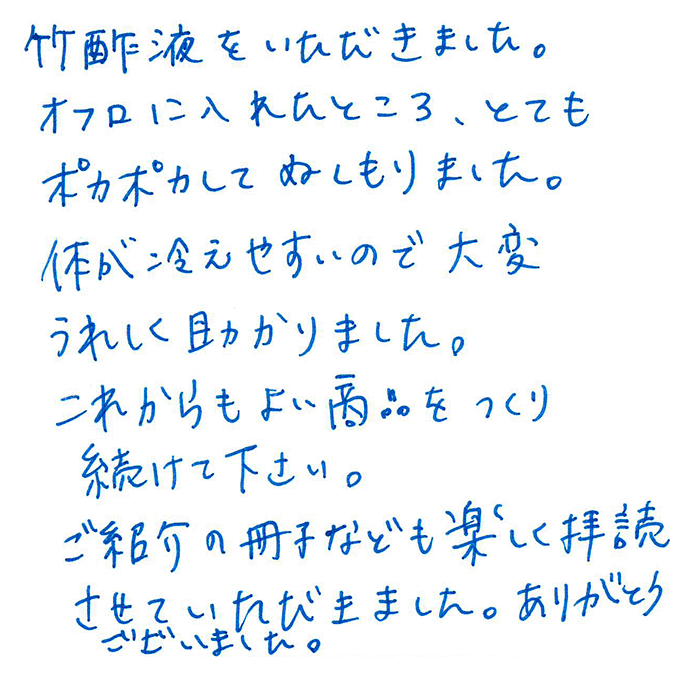 竹酢液をいただきました。
オフロに入れたところ、とても
ポカポカしてぬくもりました。
体が冷えやすいので大変
うれしく助かりました。
これからもよい商品をつくり
続けて下さい。
ご紹介の冊子なども楽しく拝読
させていただきました。ありがとう
ございました。